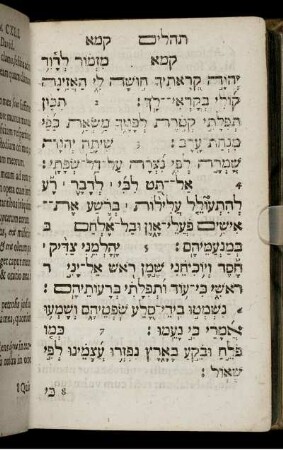 M. CXLI
David.
תהלים קמא
קמא מִזְמוֹר לְדָוִד
יְהוָה קְרָאתִיךָ חוּשָׁה לִּי הַאֲזִינָה
קוֹלִי בְּקָרְאִי־לָךְ׃ 2 תִּכּוֹן
תְּפִלָּתִי קְטֹרֶת לְפָנֶיךָ מַשְׂאַת כַּפַּי
מִנְחַת עָרֶב׃ שִׁיתָה יְהוָה
שָׁמְרָה לְפִי נִצְּרָה עַל־דַּל־שְׂפָתָי׃
4 אַל־תַּט לִבִּי לְדָבָר רָע
לְהִתְעוֹלֵל עֲלִלוֹת בְּרֶשַׁע אֶת־
אִישִׁים פֹּעֲלֵי־אָוֶן וּבַל־אֶלְחַם
בְּמַנְעַמֵּיהֶם׃ 5 יֶהֶלְמֵנִי צַדִּיק
חֶסֶד וְיוֹכִיחֵנִי שֶׁמֶן רֹאשׁ אַל־יָנִי
רֹאשִׁי כִּי־עוֹד וּתְפִלָּתִי בְּרָעוֹתֵיהֶם׃
נִשְׁמְטוּ בִידֵי־סֶלַע שֹׁפְטֵיהֶם וְשָׁמְעוּ
אֲמָרַי כִּי נָעֵמוּ׃ 7 כְּמוֹ
פֹלֵחַ וּבֹקֵעַ בָּאָרֶץ נִפְזְרוּ עֲצָמֵינוּ לְפִי
שְׁאוֹל׃
8 כִּי
8 Qui